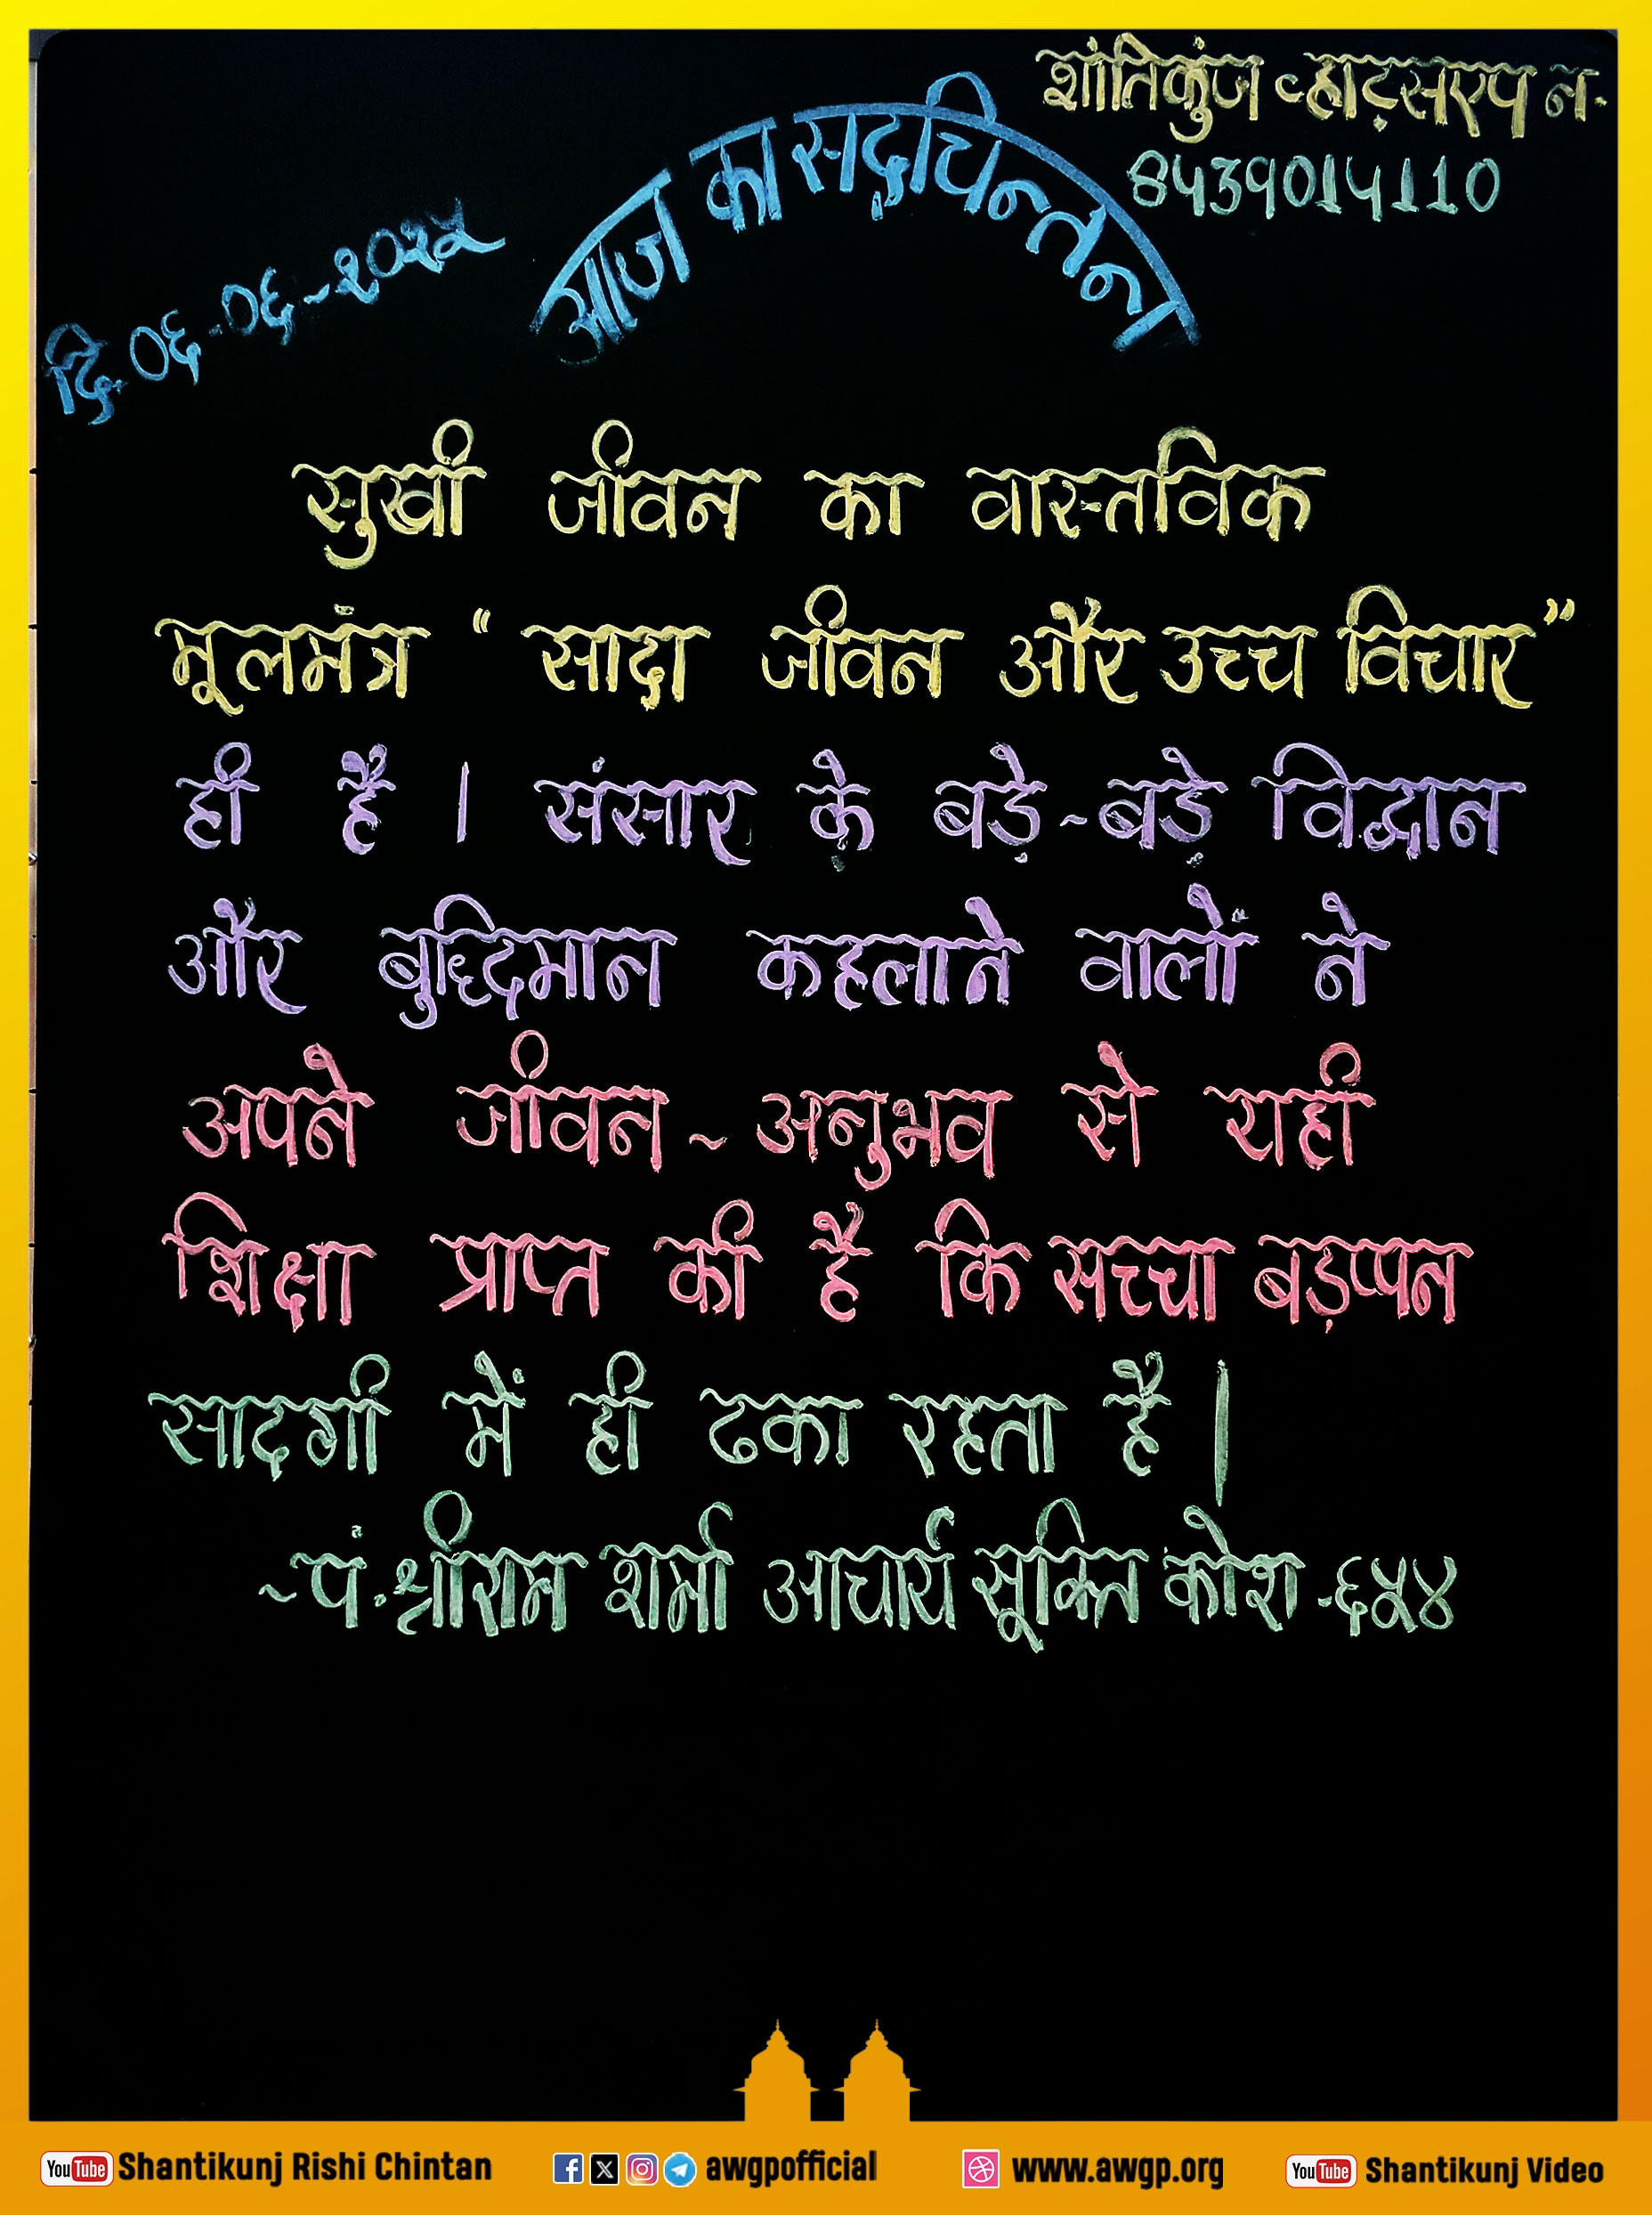 शांतिकुंज व्हाट्सएप न.
8439014110
आज का सद्चिन्तन
दि. ०६-०६-२०२५
सुखी जीवन का वास्तविक
मूलमंत्र “सादा जीवन और उच्च विचार”
ही है । संसार के बड़े-बड़े विद्वान
और बुद्धिमान कहलाने वालों ने
अपने जीवन-अनुभव से यही
शिक्षा प्राप्त की है कि सच्चा बड़प्पन
सादगी में ही ढका रहता है ।
-पं.श्रीराम शर्मा आचार्य सूक्ति कोश-६५४
YouTube Shantikunj Rishi Chintan awgpofficial www.awgp.org YouTube Shantikunj Video